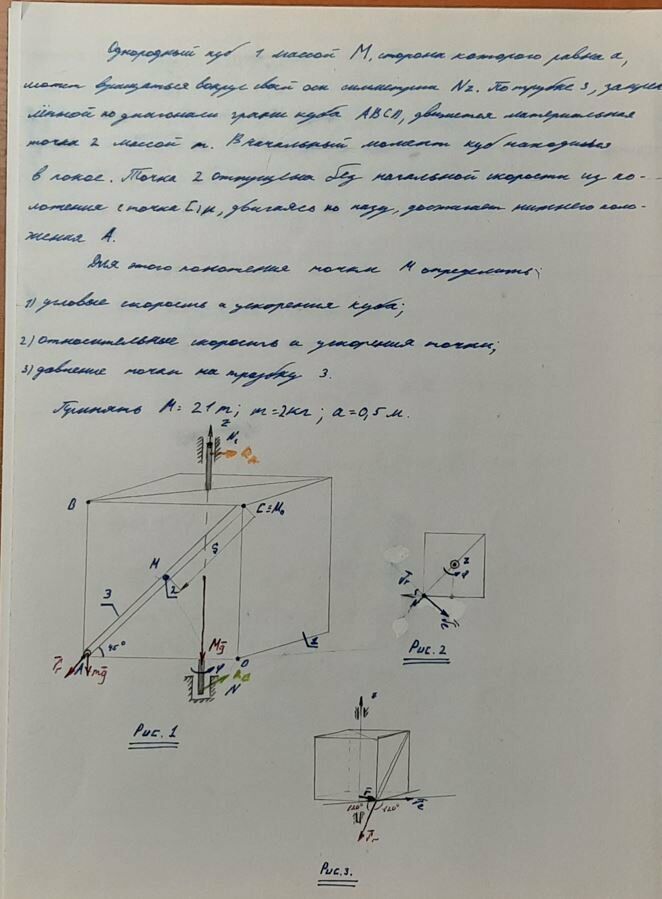 Однородный куб 1 массой M, сторона которого равна a,
может вращаться вокруг своей оси симметрии Nz. По трубке 3, закреп
лённой по диагонали грани куба ABCD, движется материальная
точка 2 массой m. В начальный момент куб находился
в покое. Точка 2 отпущена без начальной скорости из по-
ложения (точка C) и, двигаясь по пазу, достигает нижнего поло-
жения A.
Для этого положения точки M определить:
1) угловые скорость и ускорения куба;
2) относительные скорость и ускорения точки;
3) давление точки на трубку 3.
Принять M = 21 m; m = 2 кг; a = 0,5 м.
z
N₁
B
C≡M₀
S
M
2
3
45°
A
mg
Mg
φ
N
D
Vr
Рис. 1
z
φ
Vr
Ve
Рис. 2
z
r
120°
120°
Ve
Vr
Рис. 3.